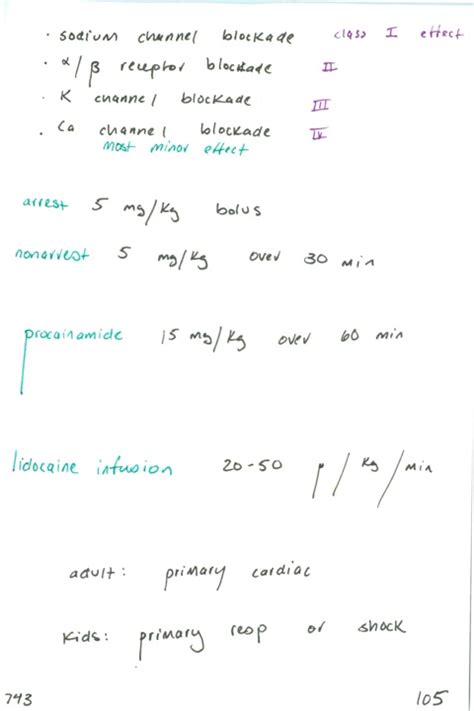 · sodium channel blockade class I effect
· α/β receptor blockade II
· K channel blockade III
· Ca channel blockade IV
most minor effect
arrest 5 mg/kg bolus
nonarrest 5 mg/kg over 30 min
procainamide 15 mg/kg over 60 min
lidocaine infusion 20-50 μ/kg/min
adult: primary cardiac
kids: primary resp or shock
743 105